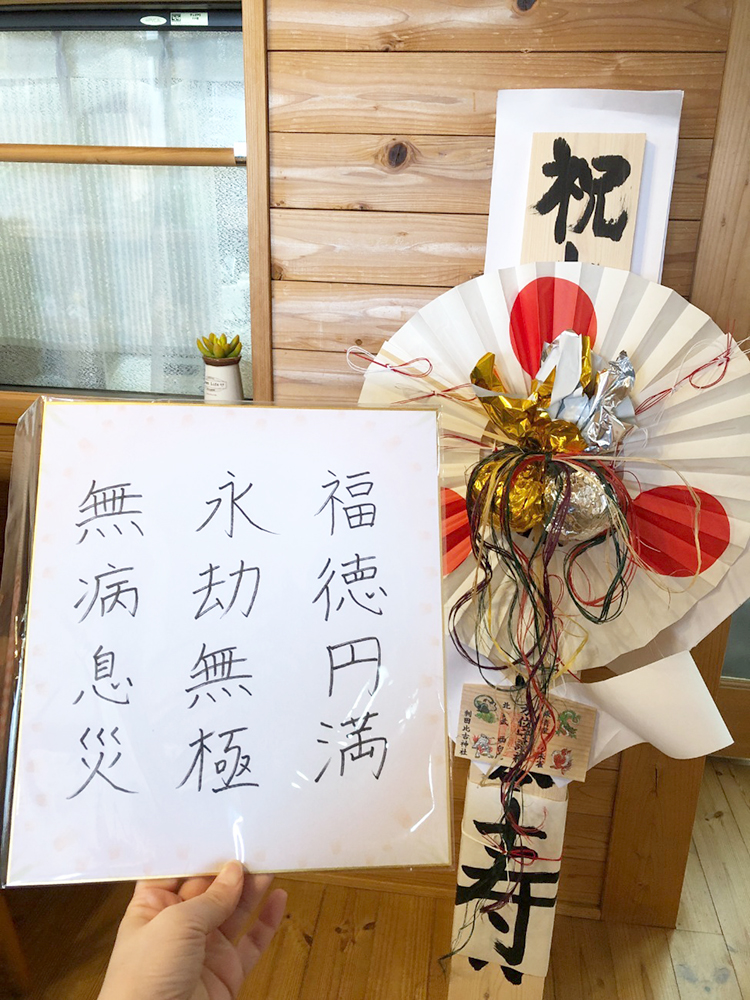 福徳円満
永劫無極
無病息災
祝
寿
北
猿田比古神社